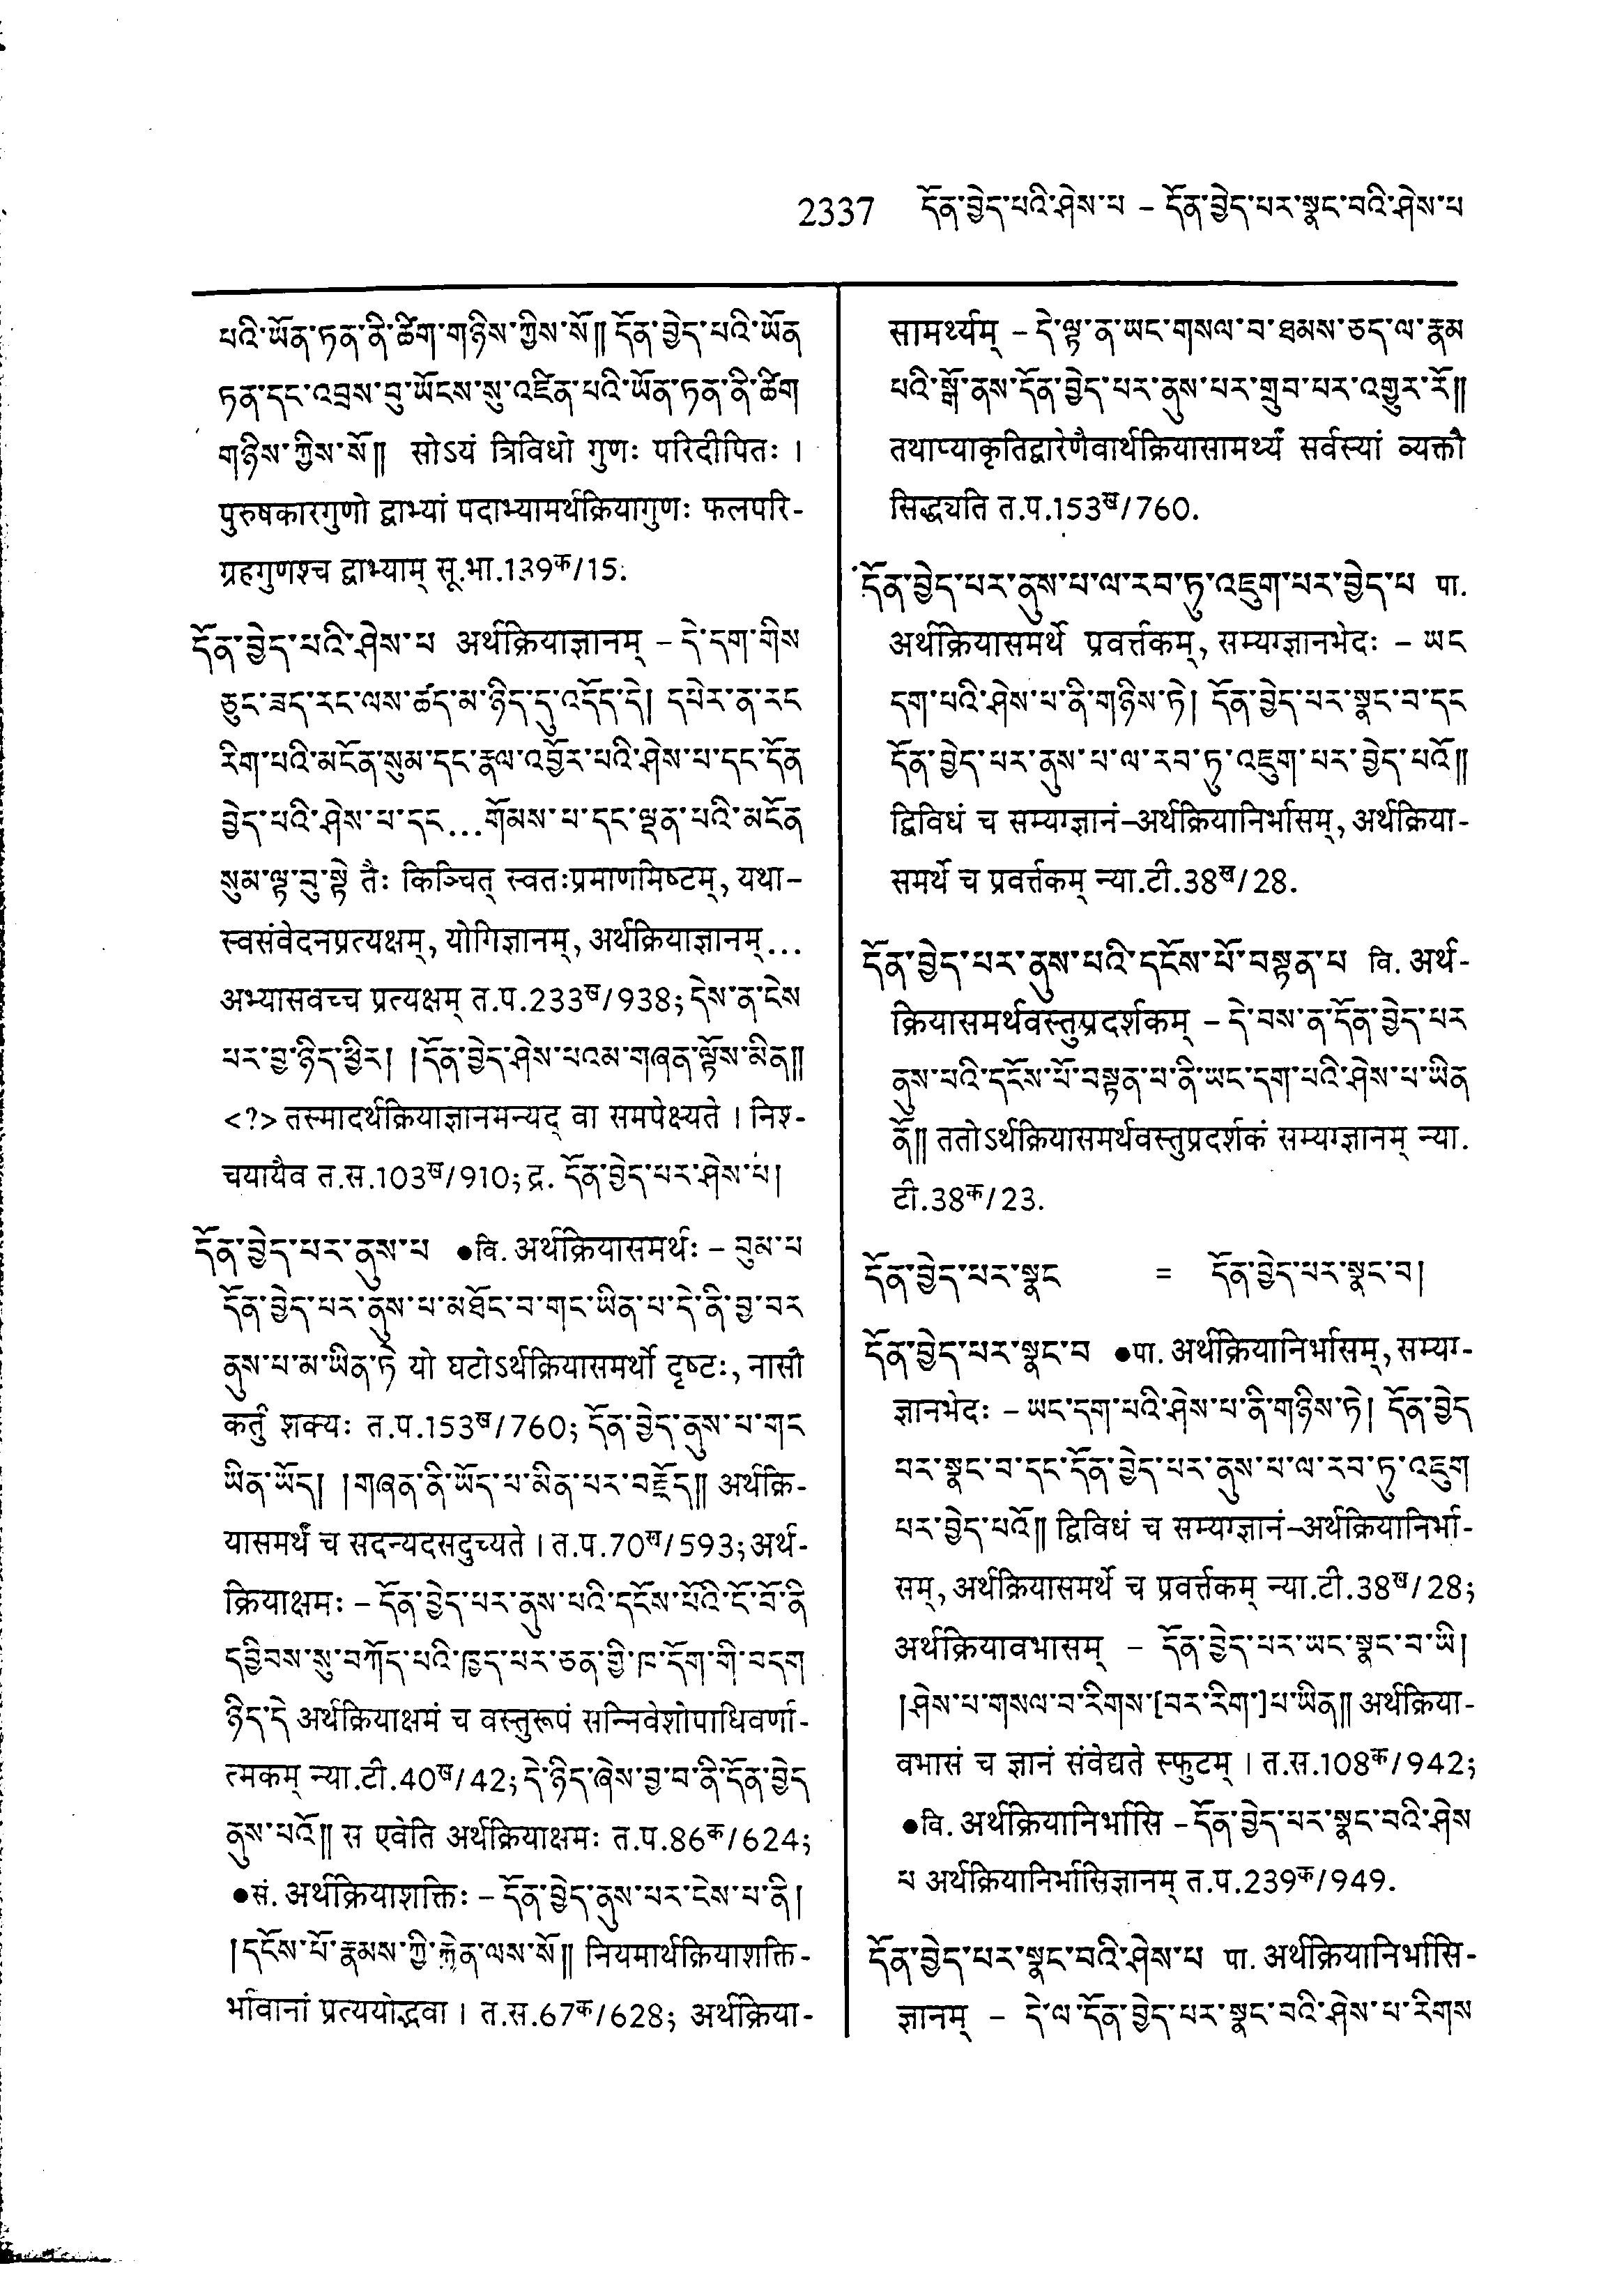 2337 དོན་བྱེད་པའི་ཤེས་པ – དོན་བྱེད་པར་སྣང་བའི་ཤེས་པ
པའི་ཡོན་ཏན་ནི་ཚིག་གཉིས་ཀྱིས་སོ༎ དོན་བྱེད་པའི་ཡོན
ཏན་དང་འབྲས་བུ་ཡོངས་སུ་འཛིན་པའི་ཡོན་ཏན་ནི་ཚིག
གཉིས་ཀྱིས་སོ༎ सोऽयं त्रिविधो गुणः परिदीपितः ।
पुरुषकारगुणो द्वाभ्यां पदाभ्यामर्थक्रियागुणः फलपरि-
ग्रहगुणश्च द्वाभ्याम् सू.भा.139क/15.
དོན་བྱེད་པའི་ཤེས་པ अर्थक्रियाज्ञानम् – དེ་དག་གིས
ཅུང་ཟད་རང་ལས་ཚད་མ་ཉིད་དུ་འདོད་དེ། དཔེར་ན་རང
རིག་པའི་མངོན་སུམ་དང་རྣལ་འབྱོར་པའི་ཤེས་པ་དང་དོན
བྱེད་པའི་ཤེས་པ་དང...གོམས་པ་དང་ལྡན་པའི་མངོན
སུམ་ལྟ་བུ་སྟེ तैः किञ्चित् स्वतःप्रमाणमिष्टम्, यथा–
स्वसंवेदनप्रत्यक्षम्, योगिज्ञानम्, अर्थक्रियाज्ञानम्...
अभ्यासवच्च प्रत्यक्षम् त.प.233ख/938; དེས་ན་ངེས
པར་བྱ་ཉིད་ཕྱིར། །དོན་བྱེད་ཤེས་པའམ་གཞན་ལྟོས་མིན༎
<?> तस्मादर्थक्रियाज्ञानमन्यद् वा समपेक्ष्यते । निश्-
चयायैव त.स.103ख/910; द्र. དོན་བྱེད་པར་ཤེས་པ།
དོན་བྱེད་པར་ནུས་པ ●वि. अर्थक्रियासमर्थः – བུམ་པ
དོན་བྱེད་པར་ནུས་པ་མཐོང་བ་གང་ཡིན་པ་དེ་ནི་བྱ་བར
ནུས་པ་མ་ཡིན་ཏེ यो घटोऽर्थक्रियासमर्थो दृष्टः, नासौ
कर्तुं शक्यः त.प.153ख/760; དོན་བྱེད་ནུས་པ་གང
ཡིན་ཡོད། །གཞན་ནི་ཡོད་པ་མིན་པར་བརྗོད༎ अर्थक्रि-
यासमर्थं च सदन्यदसदुच्यते । त.प.70ख/593; अर्थ-
क्रियाक्षमः – དོན་བྱེད་པར་ནུས་པའི་དངོས་པོའི་ངོ་བོ་ནི
དབྱིབས་སུ་བཀོད་པའི་ཁྱད་པར་ཅན་གྱི་ཁ་དོག་གི་བདག
ཉིད་དེ अर्थक्रियाक्षमं च वस्तुरूपं सन्निवेशोपाधिवर्णा-
त्मकम् न्या.टी.40ख/42; དེ་ཉིད་ཞེས་བྱ་བ་ནི་དོན་བྱེད
ནུས་པའོ༎ स एवेति अर्थक्रियाक्षमः त.प.86क/624;
●सं. अर्थक्रियाशक्तिः – དོན་བྱེད་ནུས་པར་ངེས་པ་ནི།
།དངོས་པོ་རྣམས་ཀྱི་རྐྱེན་ལས་སོ༎ नियमार्थक्रियाशक्ति-
र्भावानां प्रत्ययोद्भवा । त.स.67क/628; अर्थक्रिया-
सामर्थ्यम् – དེ་ལྟ་ན་ཡང་གསལ་བ་ཐམས་ཅད་ལ་རྣམ
པའི་སྒོ་ནས་དོན་བྱེད་པར་ནུས་པར་གྲུབ་པར་འགྱུར་རོ༎
तथाप्याकृतिद्वारेणैवार्थक्रियासामर्थ्यं सर्वस्यां व्यक्तौ
सिद्ध्यति त.प.153ख/760.
དོན་བྱེད་པར་ནུས་པ་ལ་རབ་ཏུ་འཇུག་པར་བྱེད་པ पा.
अर्थक्रियासमर्थे प्रवर्त्तकम्, सम्यग्ज्ञानभेदः – ཡང
དག་པའི་ཤེས་པ་ནི་གཉིས་ཏེ། དོན་བྱེད་པར་སྣང་བ་དང
དོན་བྱེད་པར་ནུས་པ་ལ་རབ་ཏུ་འཇུག་པར་བྱེད་པའོ༎
द्विविधं च सम्यग्ज्ञानं–अर्थक्रियानिर्भासम्, अर्थक्रिया-
समर्थे च प्रवर्त्तकम् न्या.टी.38ख/28.
དོན་བྱེད་པར་ནུས་པའི་དངོས་པོ་བསྟན་པ वि. अर्थ-
क्रियासमर्थवस्तुप्रदर्शकम् – དེ་བས་ན་དོན་བྱེད་པར
ནུས་པའི་དངོས་པོ་བསྟན་པ་ནི་ཡང་དག་པའི་ཤེས་པ་ཡིན
ནོ༎ ततोऽर्थक्रियासमर्थवस्तुप्रदर्शकं सम्यग्ज्ञानम् न्या.
टी.38क/23.
དོན་བྱེད་པར་སྣང = དོན་བྱེད་པར་སྣང་བ།
དོན་བྱེད་པར་སྣང་བ ●पा. अर्थक्रियानिर्भासम्, सम्यग्-
ज्ञानभेदः – ཡང་དག་པའི་ཤེས་པ་ནི་གཉིས་ཏེ། དོན་བྱེད
པར་སྣང་བ་དང་དོན་བྱེད་པར་ནུས་པ་ལ་རབ་ཏུ་འཇུག
པར་བྱེད་པའོ༎ द्विविधं च सम्यग्ज्ञानं–अर्थक्रियानिर्भा-
सम्, अर्थक्रियासमर्थे च प्रवर्त्तकम् न्या.टी.38ख/28;
अर्थक्रियावभासम् – དོན་བྱེད་པར་ཡང་སྣང་བ་ཡི།
།ཤེས་པ་གསལ་བ་རིགས་[བར་རིག་]པ་ཡིན༎ अर्थक्रिया-
वभासं च ज्ञानं संवेद्यते स्फुटम् । त.स.108क/942;
●वि. अर्थक्रियानिर्भासि – དོན་བྱེད་པར་སྣང་བའི་ཤེས
པ अर्थक्रियानिर्भासिज्ञानम् त.प.239क/949.
དོན་བྱེད་པར་སྣང་བའི་ཤེས་པ पा. अर्थक्रियानिर्भासि-
ज्ञानम् – དེ་ལ་དོན་བྱེད་པར་སྣང་བའི་ཤེས་པ་རིགས